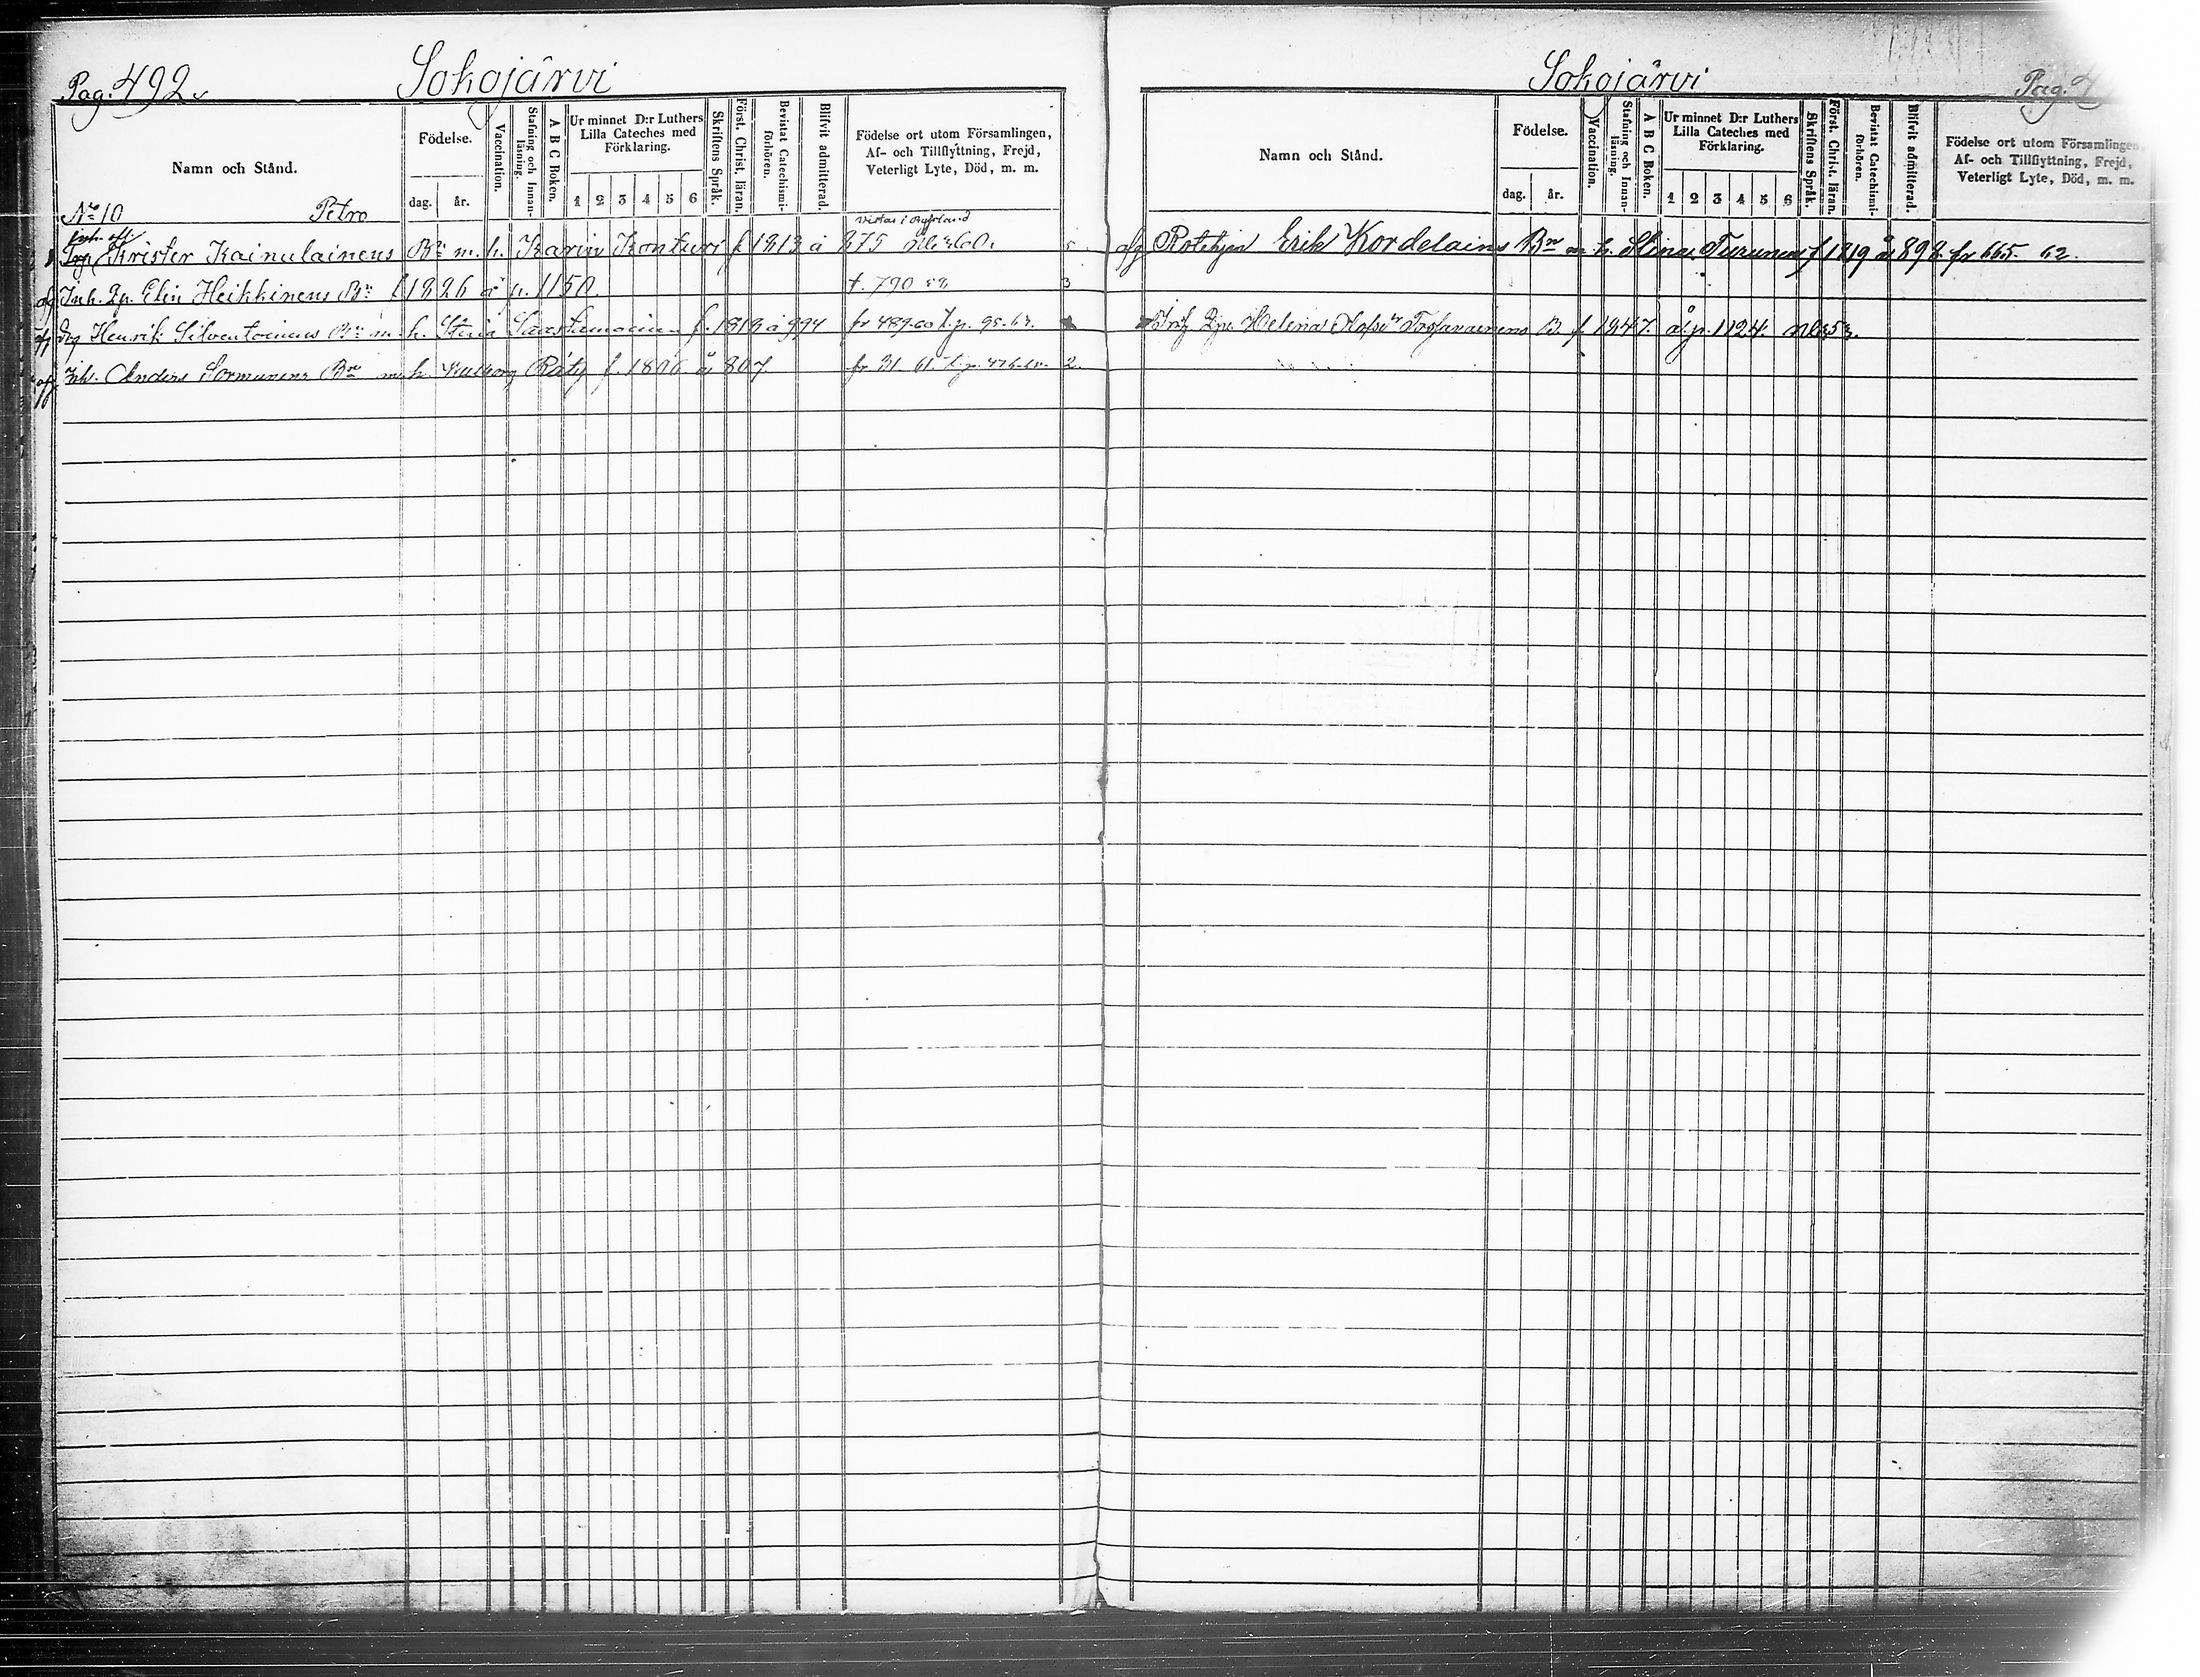 Pag. 492.
Sokojärvi
Namn och Stånd.
Födelse.
dag.
år.
Vaccination.
Stafning och Innanläsning.
A B C Boken.
Ur minnet D:r Luthers Lilla Cateches med Förklaring.
1 2 3 4 5 6
Skriftens Språk.
Först. Christ. läran.
Bevistat Catechismiförhören.
Blifvit admitterad.
Födelse ort utom Församlingen,
Af- och Tillflyttning, Frejd,
Veterligt Lyte, Död, m. m.
No 10 Petro
Krister Kainulainens Bn m. h. Karin Konturi f. 1813 å 875
Inh. Elin Heikkinens Bn f 1826 å p. 1150. t. 790 3
Henrik Silventoinens Bn m. h. Stina f. 1819 å 994 fr 489-60 t. p. 95-63.
Inh. Anders Sormunens Bn m. h. Räty f. 1806 å 807 fr 31. 61. t. p. 2.
Sokojärvi
Pag.
Namn och Stånd.
Födelse.
dag.
år.
Vaccination.
Stafning och Innanläsning.
A B C Boken.
Ur minnet D:r Luthers Lilla Cateches med Förklaring.
1 2 3 4 5 6
Skriftens Språk.
Först. Christ. läran.
Bevistat Catechismiförhören.
Blifvit admitterad.
Födelse ort utom Församlingen,
Af- och Tillflyttning, Frejd,
Veterligt Lyte, Död, m. m.
Erik Kordelains Bn m h. Stina Turunen f 1819 å 898. fr 665. 62.
Helena B. f. 1847. å p. 1124.